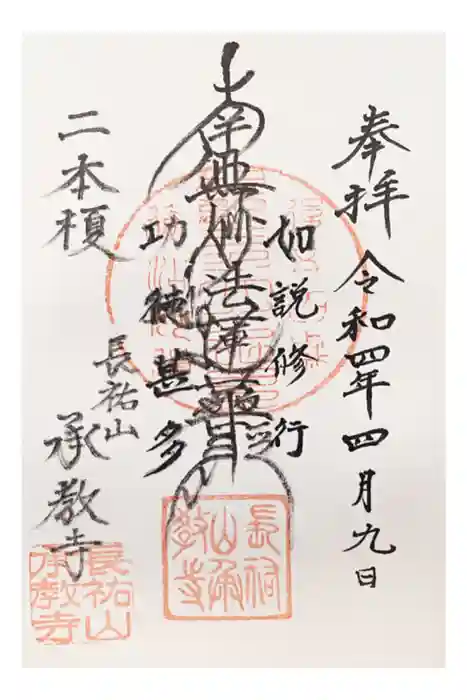 奉拝 令和四年四月九日
如説修行
南無妙法蓮華経
功徳甚多
二本榎
長祐山
承教寺
長祠山承教寺
長祐山承教寺